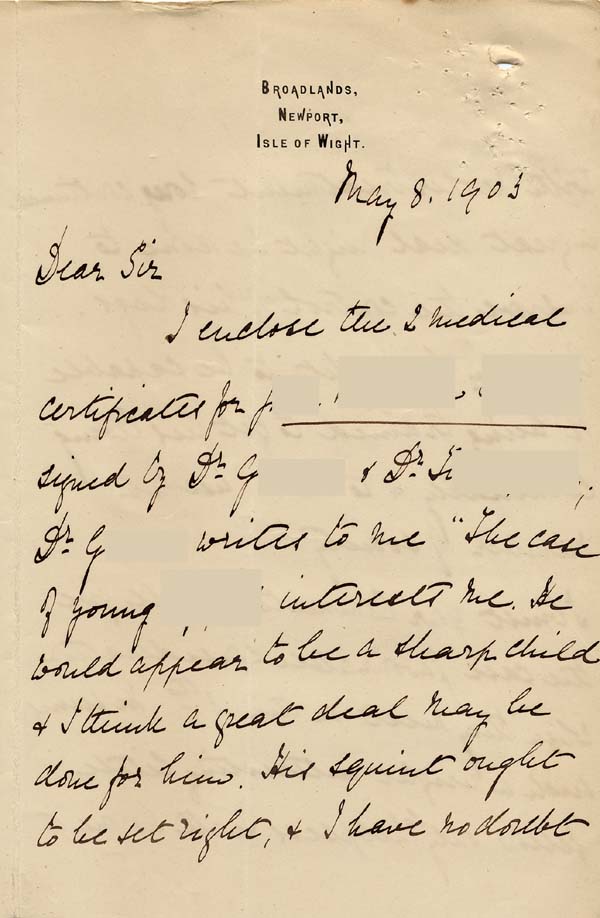 BROADLANDS,
NEWPORT,
ISLE OF WIGHT.
May 8. 1903
Dear Sir
I enclose the 2 medical
certificates for
signed by Dr G & Dr
Dr G writes to me "The case
of young interests me. He
would appear to be a sharp child
& I think a great deal may be
done for him. His squint ought
to be set right, & I have no doubt